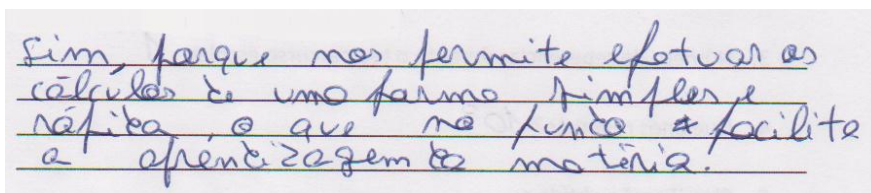 Sim, porque nos permite efetuar os
cálculos de uma forma simples e
rápida, o que no fundo facilita
a aprendizagem da matéria.